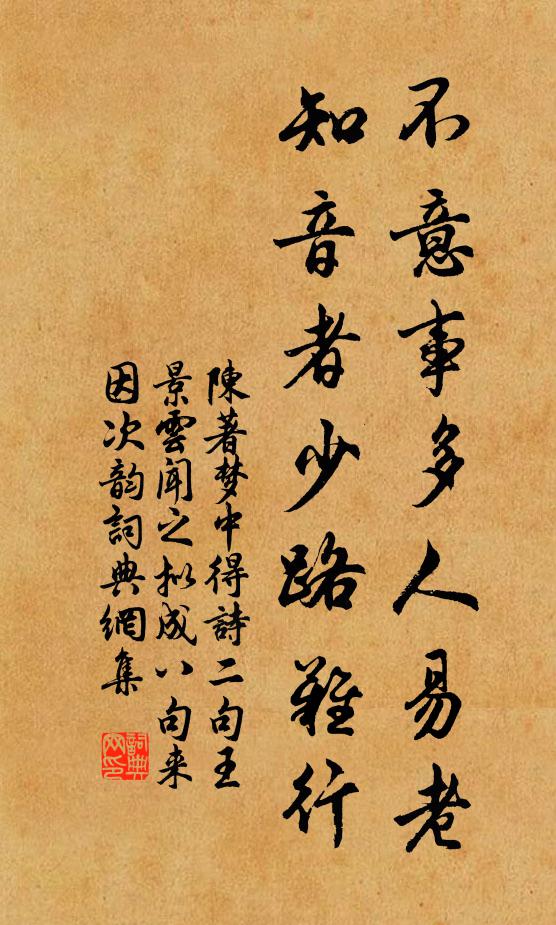 不意事多人易老
知音者少路難行
陳著梦中得詩二句王
景雲闻之拟成八句来
因次韵詞典網集
詞典网印